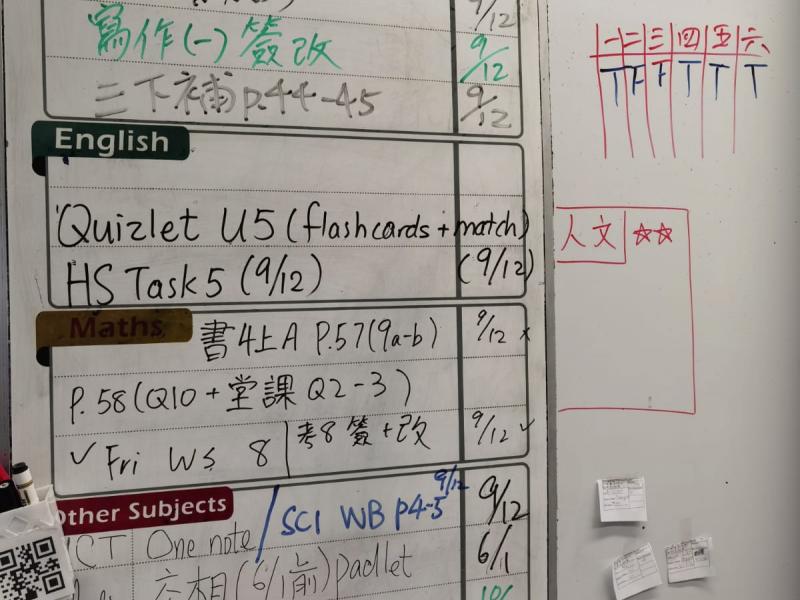 9/12
寫作(一)簽改 9/12
三下補p.44-45 9/12
English
Quizlet U5 (flashcards + match)
HS Task 5 (9/12) (9/12)
Maths
書4上A P.57(9a-b) 9/12 x
P.58(Q10 + 堂課 Q2-3)
✓ Fri WS 8 | 考8 簽+改 9/12 ✓
Other Subjects
SCI WB p4-5 9/12 9/12
ICT One note 6/1
(6/1前) padlet
一 二 三 四 五 六
T F F T T T
人文 ☆☆